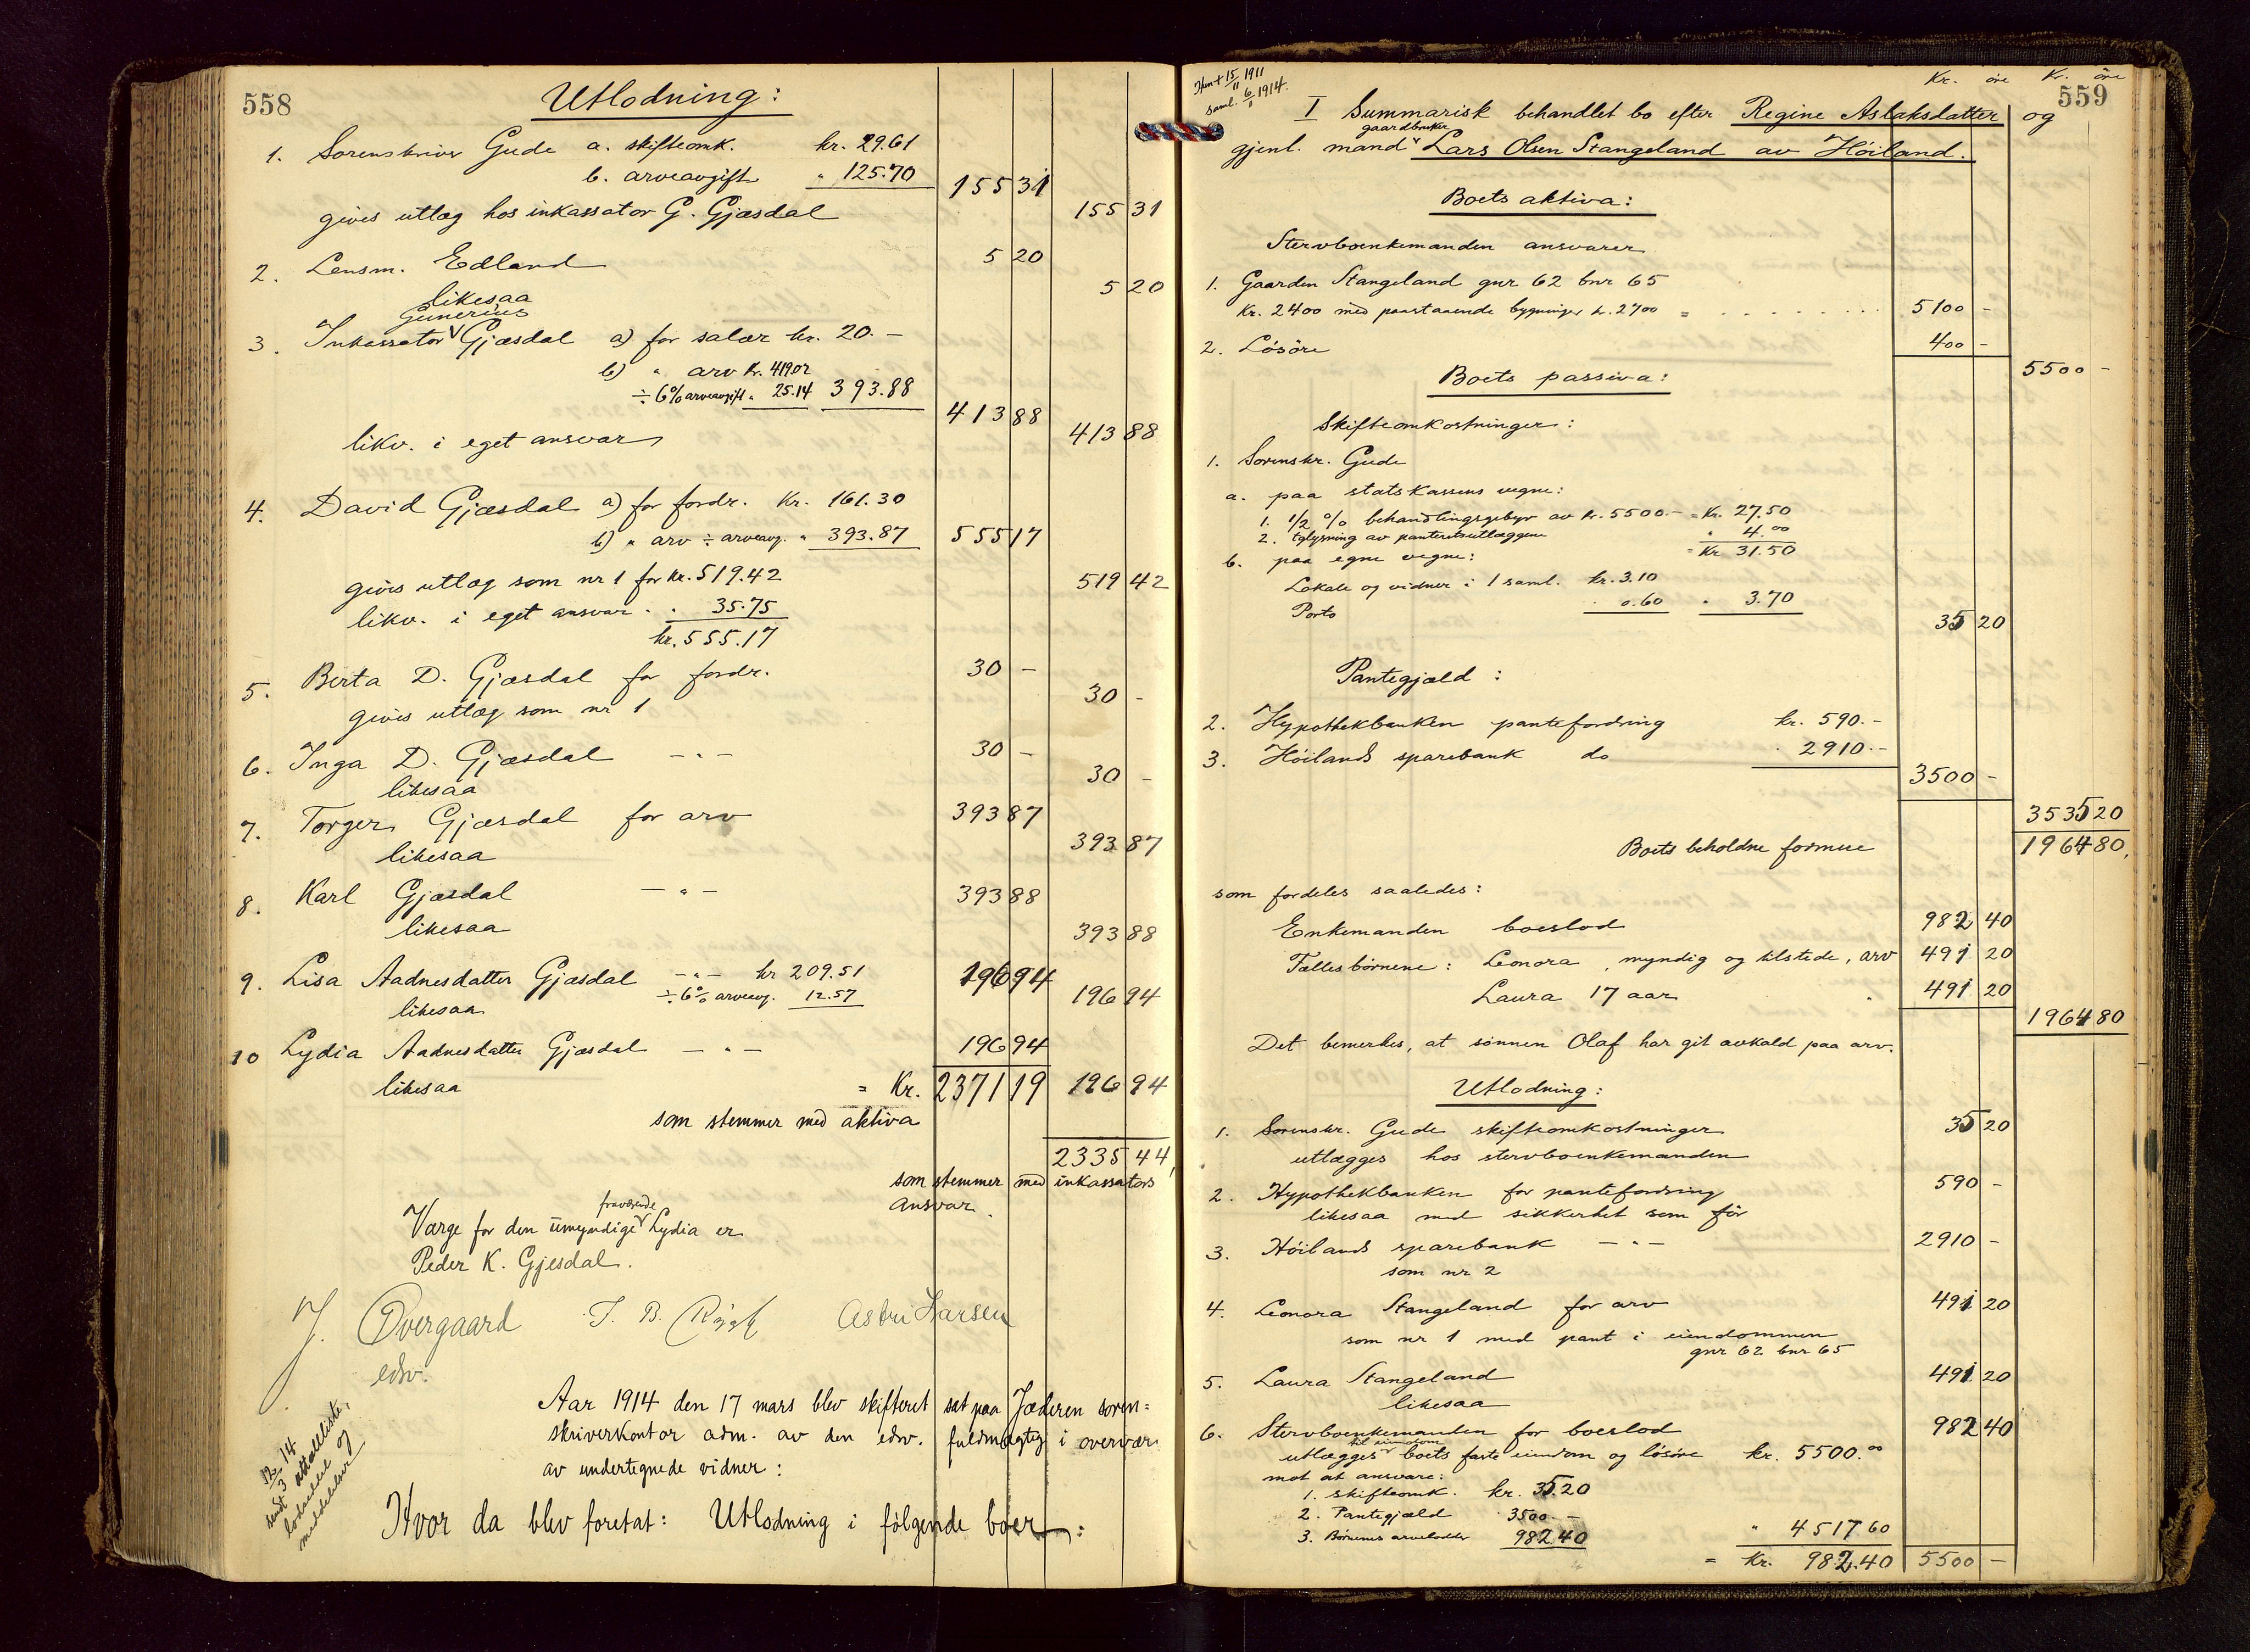 558
Utlodning:
1. Sorenskriver Gude a. skifteomk. kr. 29.61
b. arveavgift " 125.70 155 31
gives utlæg hos inkassator G. Gjæsdal 155 31
2. Lensm. Edland 5 20
likesaa 5 20
Gunerius
3. Inkassator Gjæsdal a) for salær kr. 20.-
b) " arv kr. 419.02
÷ 6% arveavgift " 25.14 393.88 413 88
likv. i eget ansvar 413 88
4. David Gjæsdal a) for fordr. Kr. 161.30
b) " arv ÷ arveavg. " 393.87 555 17
gives utlæg som nr 1 for kr. 519.42 519 42
likv. i eget ansvar " 35.75
kr. 555.17
5. Berta D. Gjæsdal for fordr. 30 -
gives utlæg som nr 1 30 -
6. Inga D. Gjæsdal - " - 30 -
likesaa 30 -
7. Torger Gjæsdal for arv 393 87
likesaa 393 87
8. Karl Gjæsdal - " - 393 88
likesaa 393 88
9. Lisa Aadnesdatter Gjæsdal - " - kr 209.51 196 94
÷ 6% arveavg. 12.57
likesaa 196 94
10 Lydia Aadnesdatter Gjæsdal - " - 196 94
likesaa = Kr. 2371 19 196 94
som stemmer med aktiva
2335 44
som stemmer med inkassators
ansvar.
fraværende
Værge for den umyndige Lydia er
Peder K. Gjesdal.
J. Overgaard T. B. Astri Larsen
edsv.
Aar 1914 den 17 mars blev skifteret sat paa Jæderen soren=
skriverkontor adm. av den edsv. fuldmægtig i overvær
av undertegnede vidner:
sendt 3
lodseddel og
Hvor da blev foretat: Utlodning i følgende boer:
559
Kr. øre Kr. øre
15/11 1911
saml. 6/1 1914.
I Summarisk behandlet bo efter Regine Aslaksdatter og
gaardbruker
gjenl. mand Lars Olsen Stangeland av Høiland.
Boets aktiva:
Stervboenkemanden ansvarer
1. Gaarden Stangeland gnr 62 bnr 65
Kr. 2400 med paastaaende bygninger kr. 2700 = 5100 -
2. Løsøre 400 -
5500 -
Boets passiva:
Skifteomkostninger:
1. Sorenskr. Gude
a. paa statskassens vegne:
1. 1/2 % behandlingsgebyr av kr. 5500.- = Kr. 27.50
2. Tglysning av panteretsutlæggene " 4.00
= Kr 31.50
b. paa egne vegne:
Lokale og vidner i 1 saml. kr. 3.10
Porto " 0.60 " 3.70
35 20
Pantegjæld:
2. Hypothekbanken pantefordring kr. 590.-
3. Høilands sparebank do " 2910.-
3500 -
3535 20
Boets beholdne formue 1964 80
som fordeles saaledes:
Enkemanden boeslod 982 40
Fællesbørnene: Leonora, myndig og tilstede, arv 491 20
Laura 17 aar " 491 20
1964 80
Det bemerkes, at sønnen Olaf har git avkald paa arv.
Utlodning:
1. Sorenskr. Gude skifteomkostninger 35 20
utlægges hos stervboenkemanden
2. Hypothekbanken for pantefordring 590 -
likesaa med sikkerhet som før
3. Høilands sparebank - " - 2910 -
som nr 2
4. Leonora Stangeland for arv 491 20
som nr 1 med pant i eiendommen
gnr 62 bnr 65
5. Laura Stangeland 491 20
likesaa
6. Stervboenkemanden for boeslod 982 40
til eiendom
utlægges boets faste eiendom og løsøre kr. 5500.00
mot at ansvare:
1. skifteomk. kr. 35.20
2. Pantegjæld " 3500.-
3. Børnenes arvelodder 982.40 " 4517 60
= Kr. 982.40 5500 -